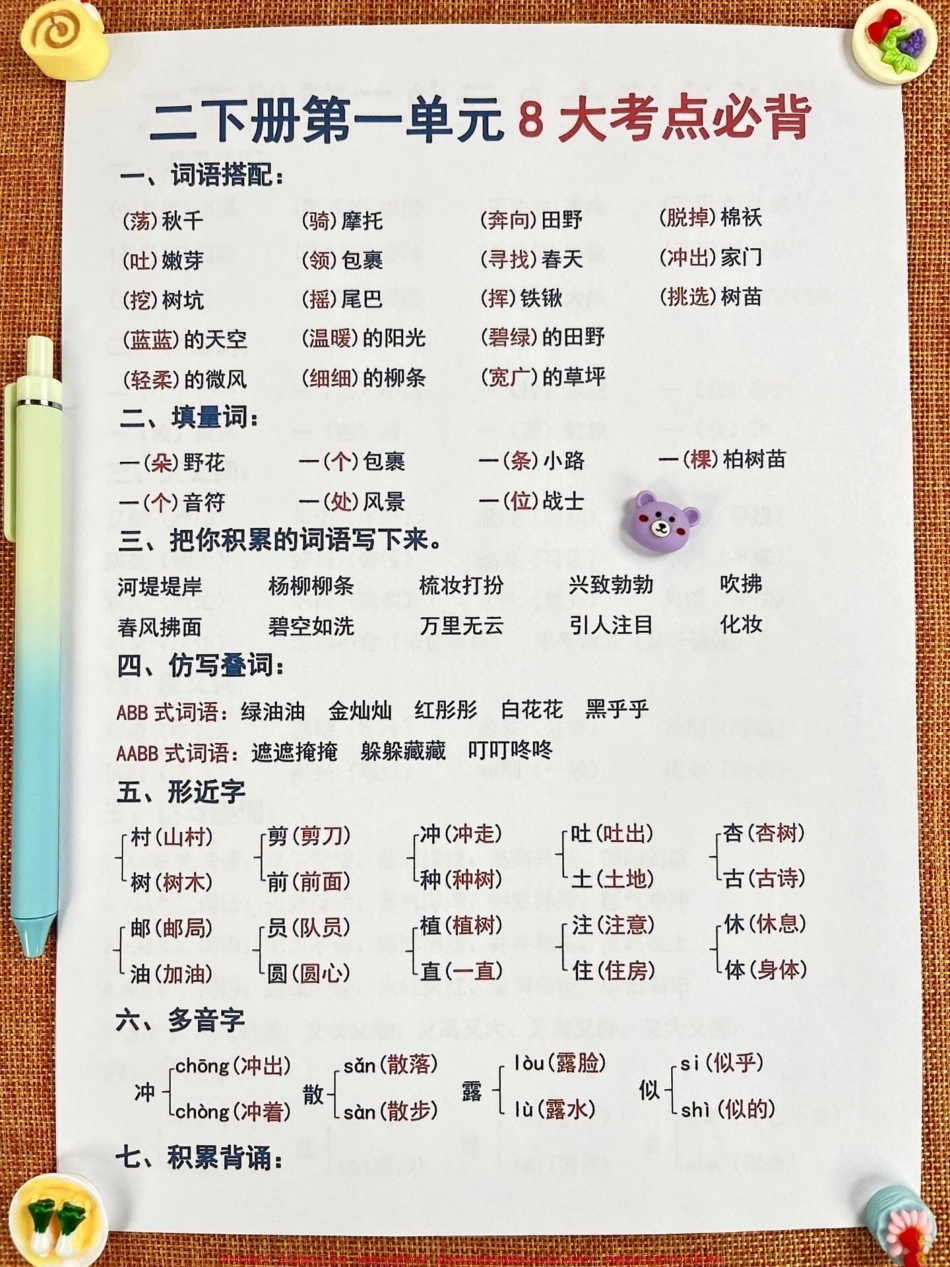 二下册第一单元8大考点必背
一、词语搭配：
(荡)秋千 (骑)摩托 (奔向)田野 (脱掉)棉袄
(吐)嫩芽 (领)包裹 (寻找)春天 (冲出)家门
(挖)树坑 (摇)尾巴 (挥)铁锹 (挑选)树苗
(蓝蓝)的天空 (温暖)的阳光 (碧绿)的田野
(轻柔)的微风 (细细)的柳条 (宽广)的草坪
二、填量词：
一(朵)野花 一(个)包裹 一(条)小路 一(棵)柏树苗
一(个)音符 一(处)风景 一(位)战士
三、把你积累的词语写下来。
河堤堤岸 杨柳柳条 梳妆打扮 兴致勃勃 吹拂
春风拂面 碧空如洗 万里无云 引人注目 化妆
四、仿写叠词：
ABB式词语：绿油油 金灿灿 红彤彤 白花花 黑乎乎
AABB式词语：遮遮掩掩 躲躲藏藏 叮叮咚咚
五、形近字
村(山村) 剪(剪刀) 冲(冲走) 吐(吐出) 杏(杏树)
树(树木) 前(前面) 种(种树) 土(土地) 古(古诗)
邮(邮局) 员(队员) 植(植树) 注(注意) 休(休息)
油(加油) 圆(圆心) 直(一直) 住(住房) 体(身体)
六、多音字
chōng(冲出) sǎn(散落) lòu(露脸) sì(似乎)
冲 散 露 似
chòng(冲着) sàn(散步) lù(露水) shì(似的)
七、积累背诵：